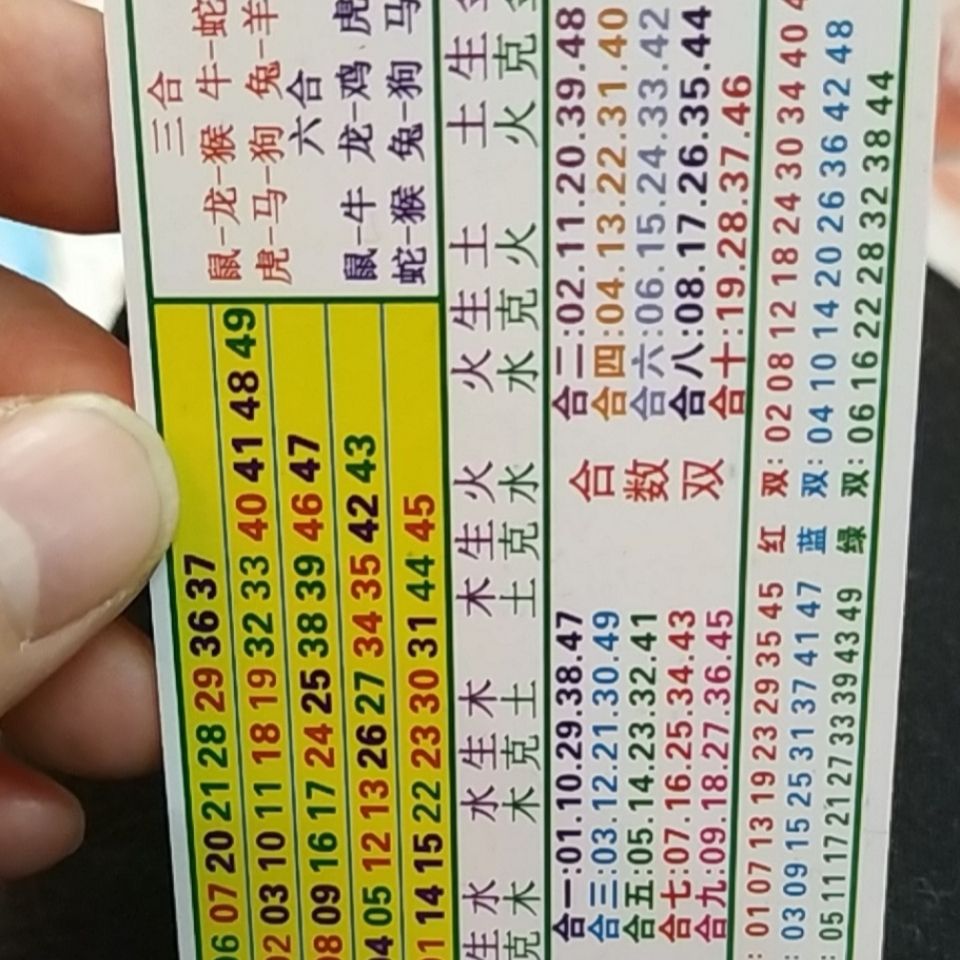 06 07 20 21 28 29 36 37
02 03 10 11 18 19 32 33 40 41 48 49
08 09 16 17 24 25 38 39 46 47
04 05 12 13 26 27 34 35 42 43
01 14 15 22 23 30 31 44 45
三合
鼠-龙-猴 牛-蛇
虎-马-狗 兔-羊
六合
鼠-牛 龙-鸡 虎
蛇-猴 兔-狗 马
生水 水生木 木生火 火生土 土生金
克木 木克土 土克水 水克火 火克金
合一:01.10.29.38.47
合三:03.12.21.30.49
合五:05.14.23.32.41
合七:07.16.25.34.43
合九:09.18.27.36.45
合数双
合二:02.11.20.39.48
合四:04.13.22.31.40
合六:06.15.24.33.42
合八:08.17.26.35.44
合十:19.28.37.46
: 01 07 13 19 23 29 35 45
: 03 09 15 25 31 37 41 47
: 05 11 17 21 27 33 39 43 49
红双: 02 08 12 18 24 30 34 40
蓝双: 04 10 14 20 26 36 42 48
绿双: 06 16 22 28 32 38 44